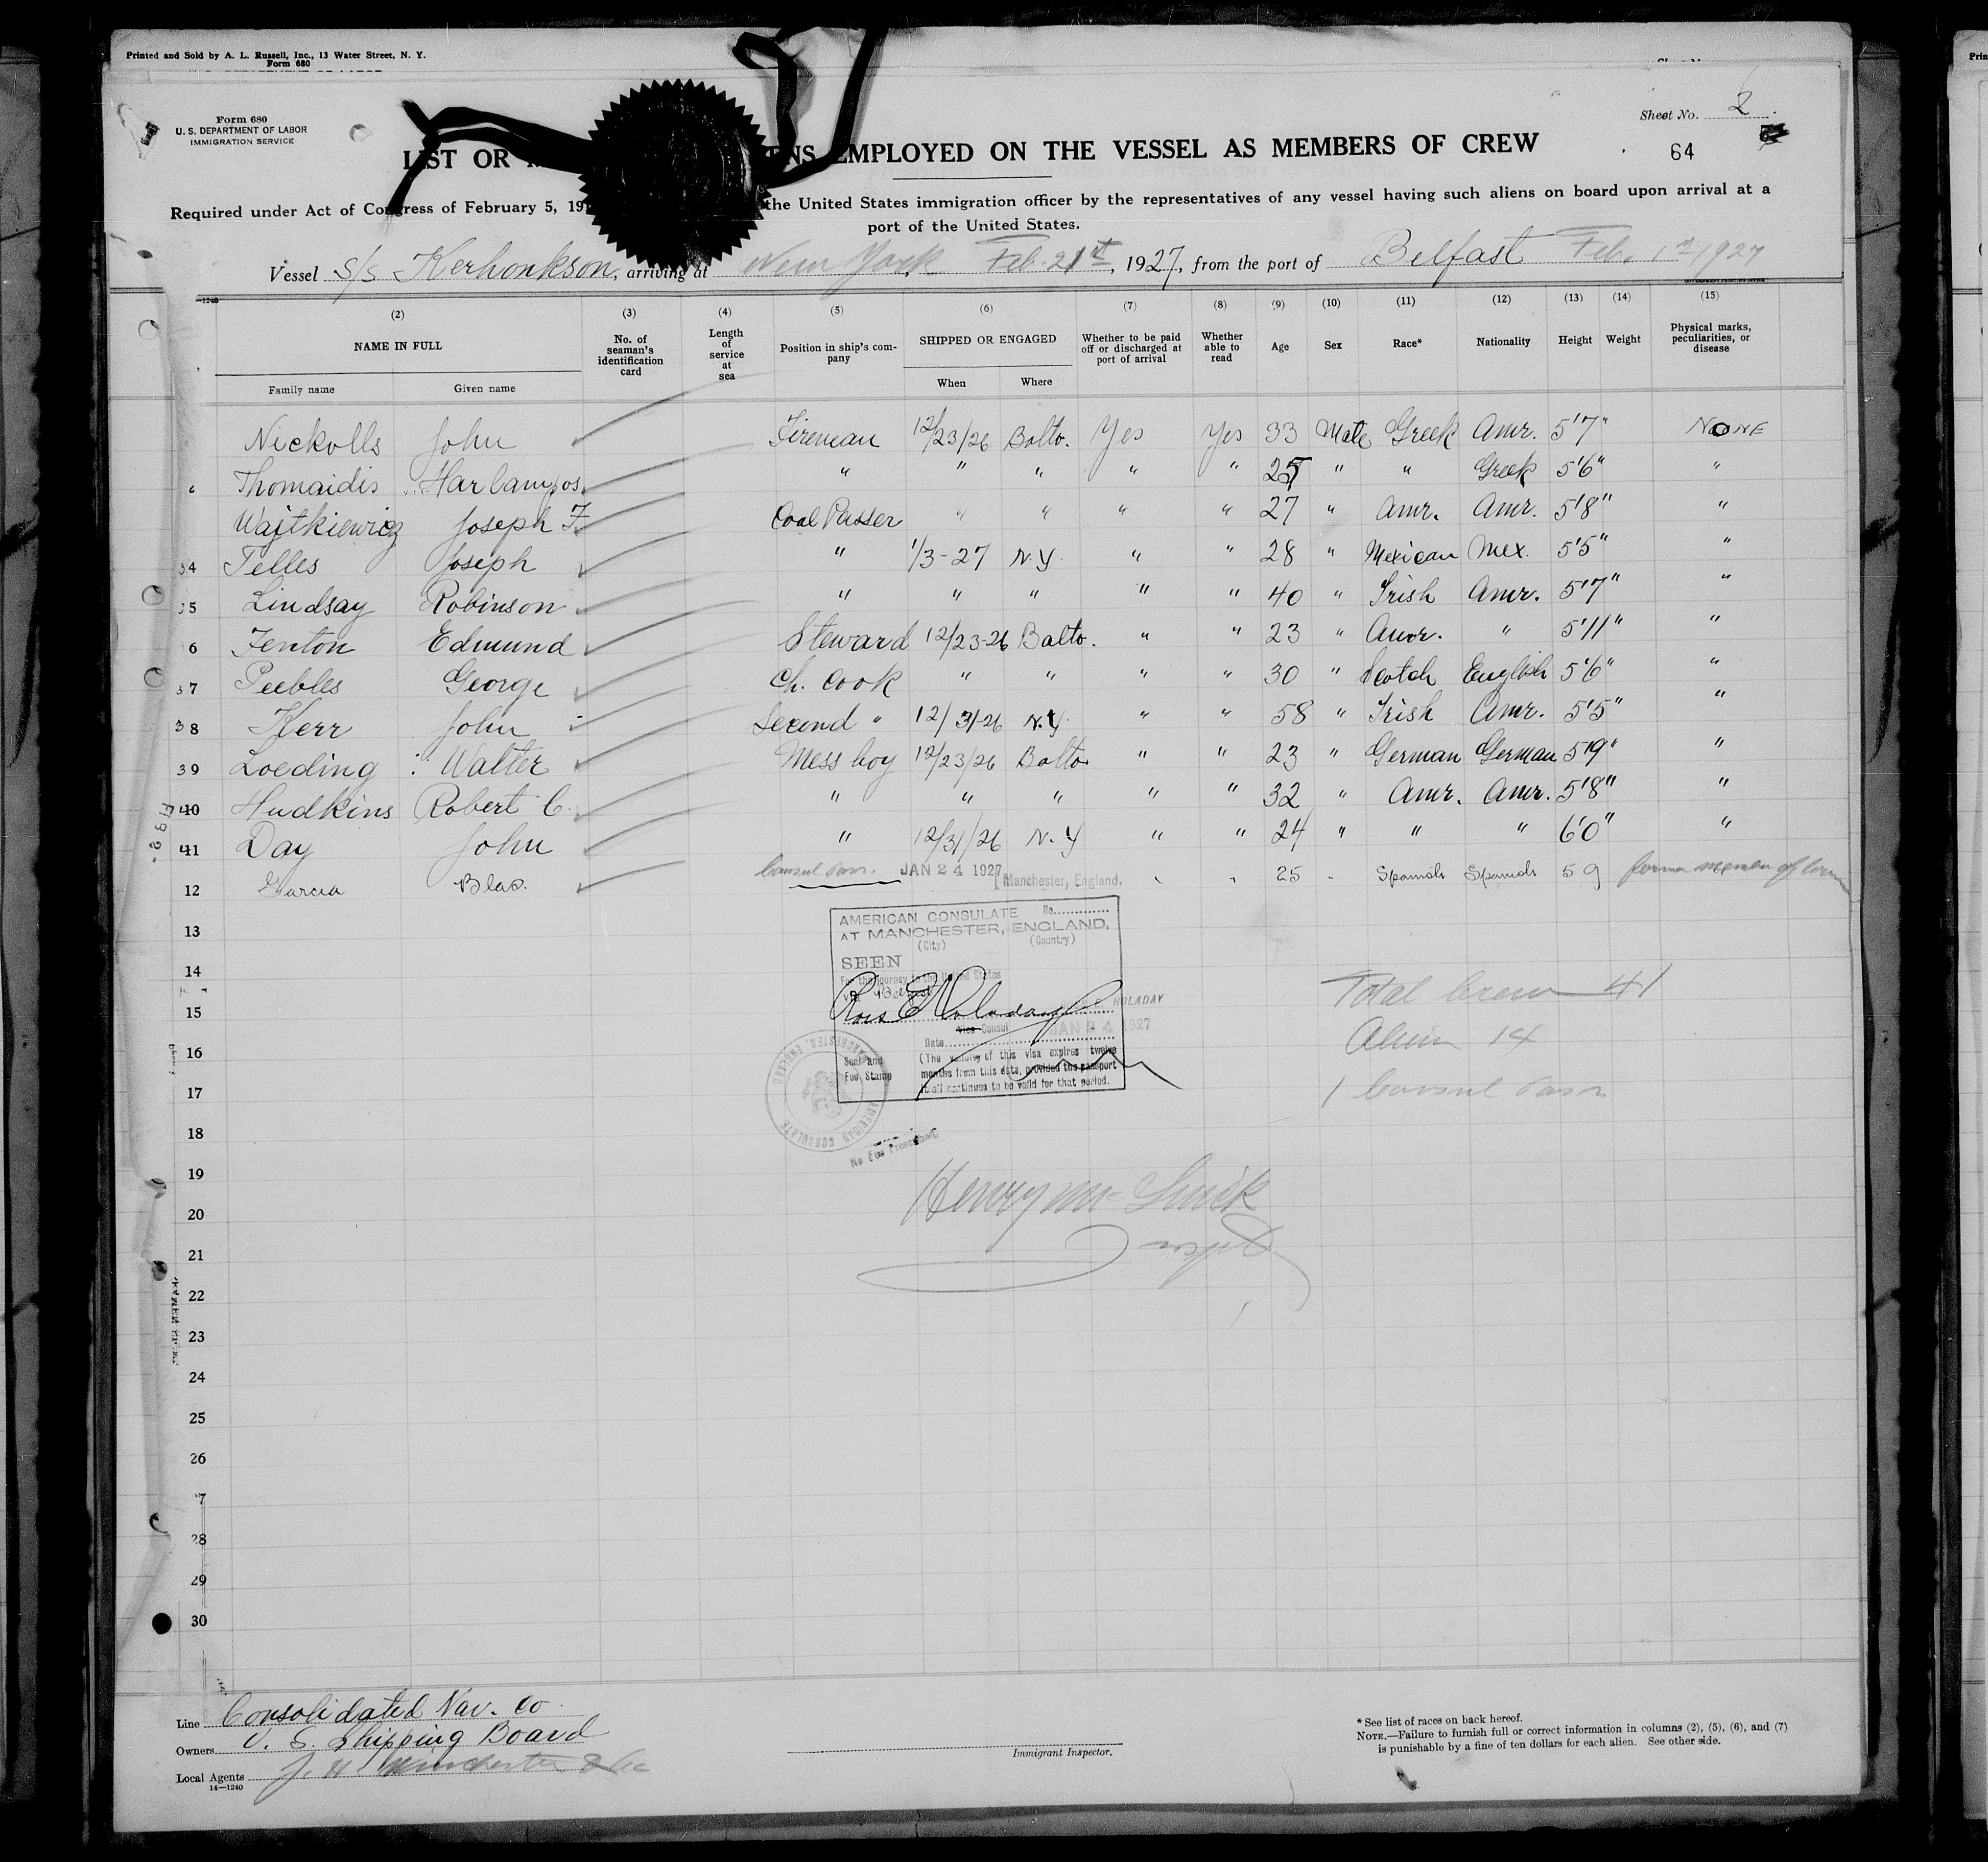 Printed and Sold by A. L. Russell, Inc., 13 Water Street, N. Y.
Form 680
Form 680
U. S. DEPARTMENT OF LABOR
IMMIGRATION SERVICE
Sheet No. 2
64
LIST OR ENS EMPLOYED ON THE VESSEL AS MEMBERS OF CREW
Required under Act of Congress of February 5, 19 the United States immigration officer by the representatives of any vessel having such aliens on board upon arrival at a
port of the United States.
Vessel S/S Kerhonkson, arriving at New York Feb. 21st, 1927, from the port of Belfast Feb. 1927
(2) (3) (4) (5) (6) (7) (8) (9) (10) (11) (12) (13) (14) (15)
NAME IN FULL No. of seaman's identification card Length of service at sea Position in ship's company SHIPPED OR ENGAGED Whether to be paid off or discharged at port of arrival Whether able to read Age Sex Race* Nationality Height Weight Physical marks, peculiarities, or disease
Family name Given name When Where
Nickolls John Fireman 12/23/26 Balto. Yes Yes 33 Male Greek Amr. 5'7" NONE
Thomaidis Harlampos " " " " " 25 " " Greek 5'6" "
Wajtkiewicz Joseph F. Coal Passer " " " " 27 " Amr. Amr. 5'8" "
34 Telles Joseph " 1/3-27 N.Y. " " 28 " Mexican Mex. 5'5" "
35 Lindsay Robinson " " " " " 40 " Irish Amr. 5'7" "
6 Fenton Edmund Steward 12/23-26 Balto. " " 23 " Amr. " 5'11" "
37 Peebles George Ch. Cook " " " " 30 " Scotch English 5'6" "
38 Kerr John Second " 12/31-26 N.Y. " " 58 " Irish Amr. 5'5" "
39 Loeding Walter Mess boy 12/23/26 Balto " " 23 " German German 5'9" "
40 Hudkins Robert C. " " " " " 32 " Amr. Amr. 5'8" "
41 Day John " 12/31/26 N.Y " " 24 " " " 6'0" "
12 Garcia Blas. Consul Pass. JAN 24 1927 Manchester, England. " " 25 " Spanish Spanish 5 9 former member of crew
13
AMERICAN CONSULATE No.
AT MANCHESTER, ENGLAND.
(City) (Country)
SEEN
14
For the journey to the United States
Via Belfast
Total Crew 41
15
HOLADAY
Vice Consul JAN 24 1927
Alien 14
16
Date
Seal and Fee Stamp
(The validity of this visa expires twelve
months from this date, provided the passport
itself continues to be valid for that period.
17
1 Consul Pass
AMERICAN CONSULATE
MANCHESTER, ENGLAND
18
No Fee Prescribed
19
20
21
22
23
24
25
26
27
28
29
30
Line Consolidated Nav. Co
Owners U. S. Shipping Board
Local Agents J. H. Winchester & Co
14—1240
Immigrant Inspector.
* See list of races on back hereof.
NOTE.—Failure to furnish full or correct information in columns (2), (5), (6), and (7)
is punishable by a fine of ten dollars for each alien. See other side.